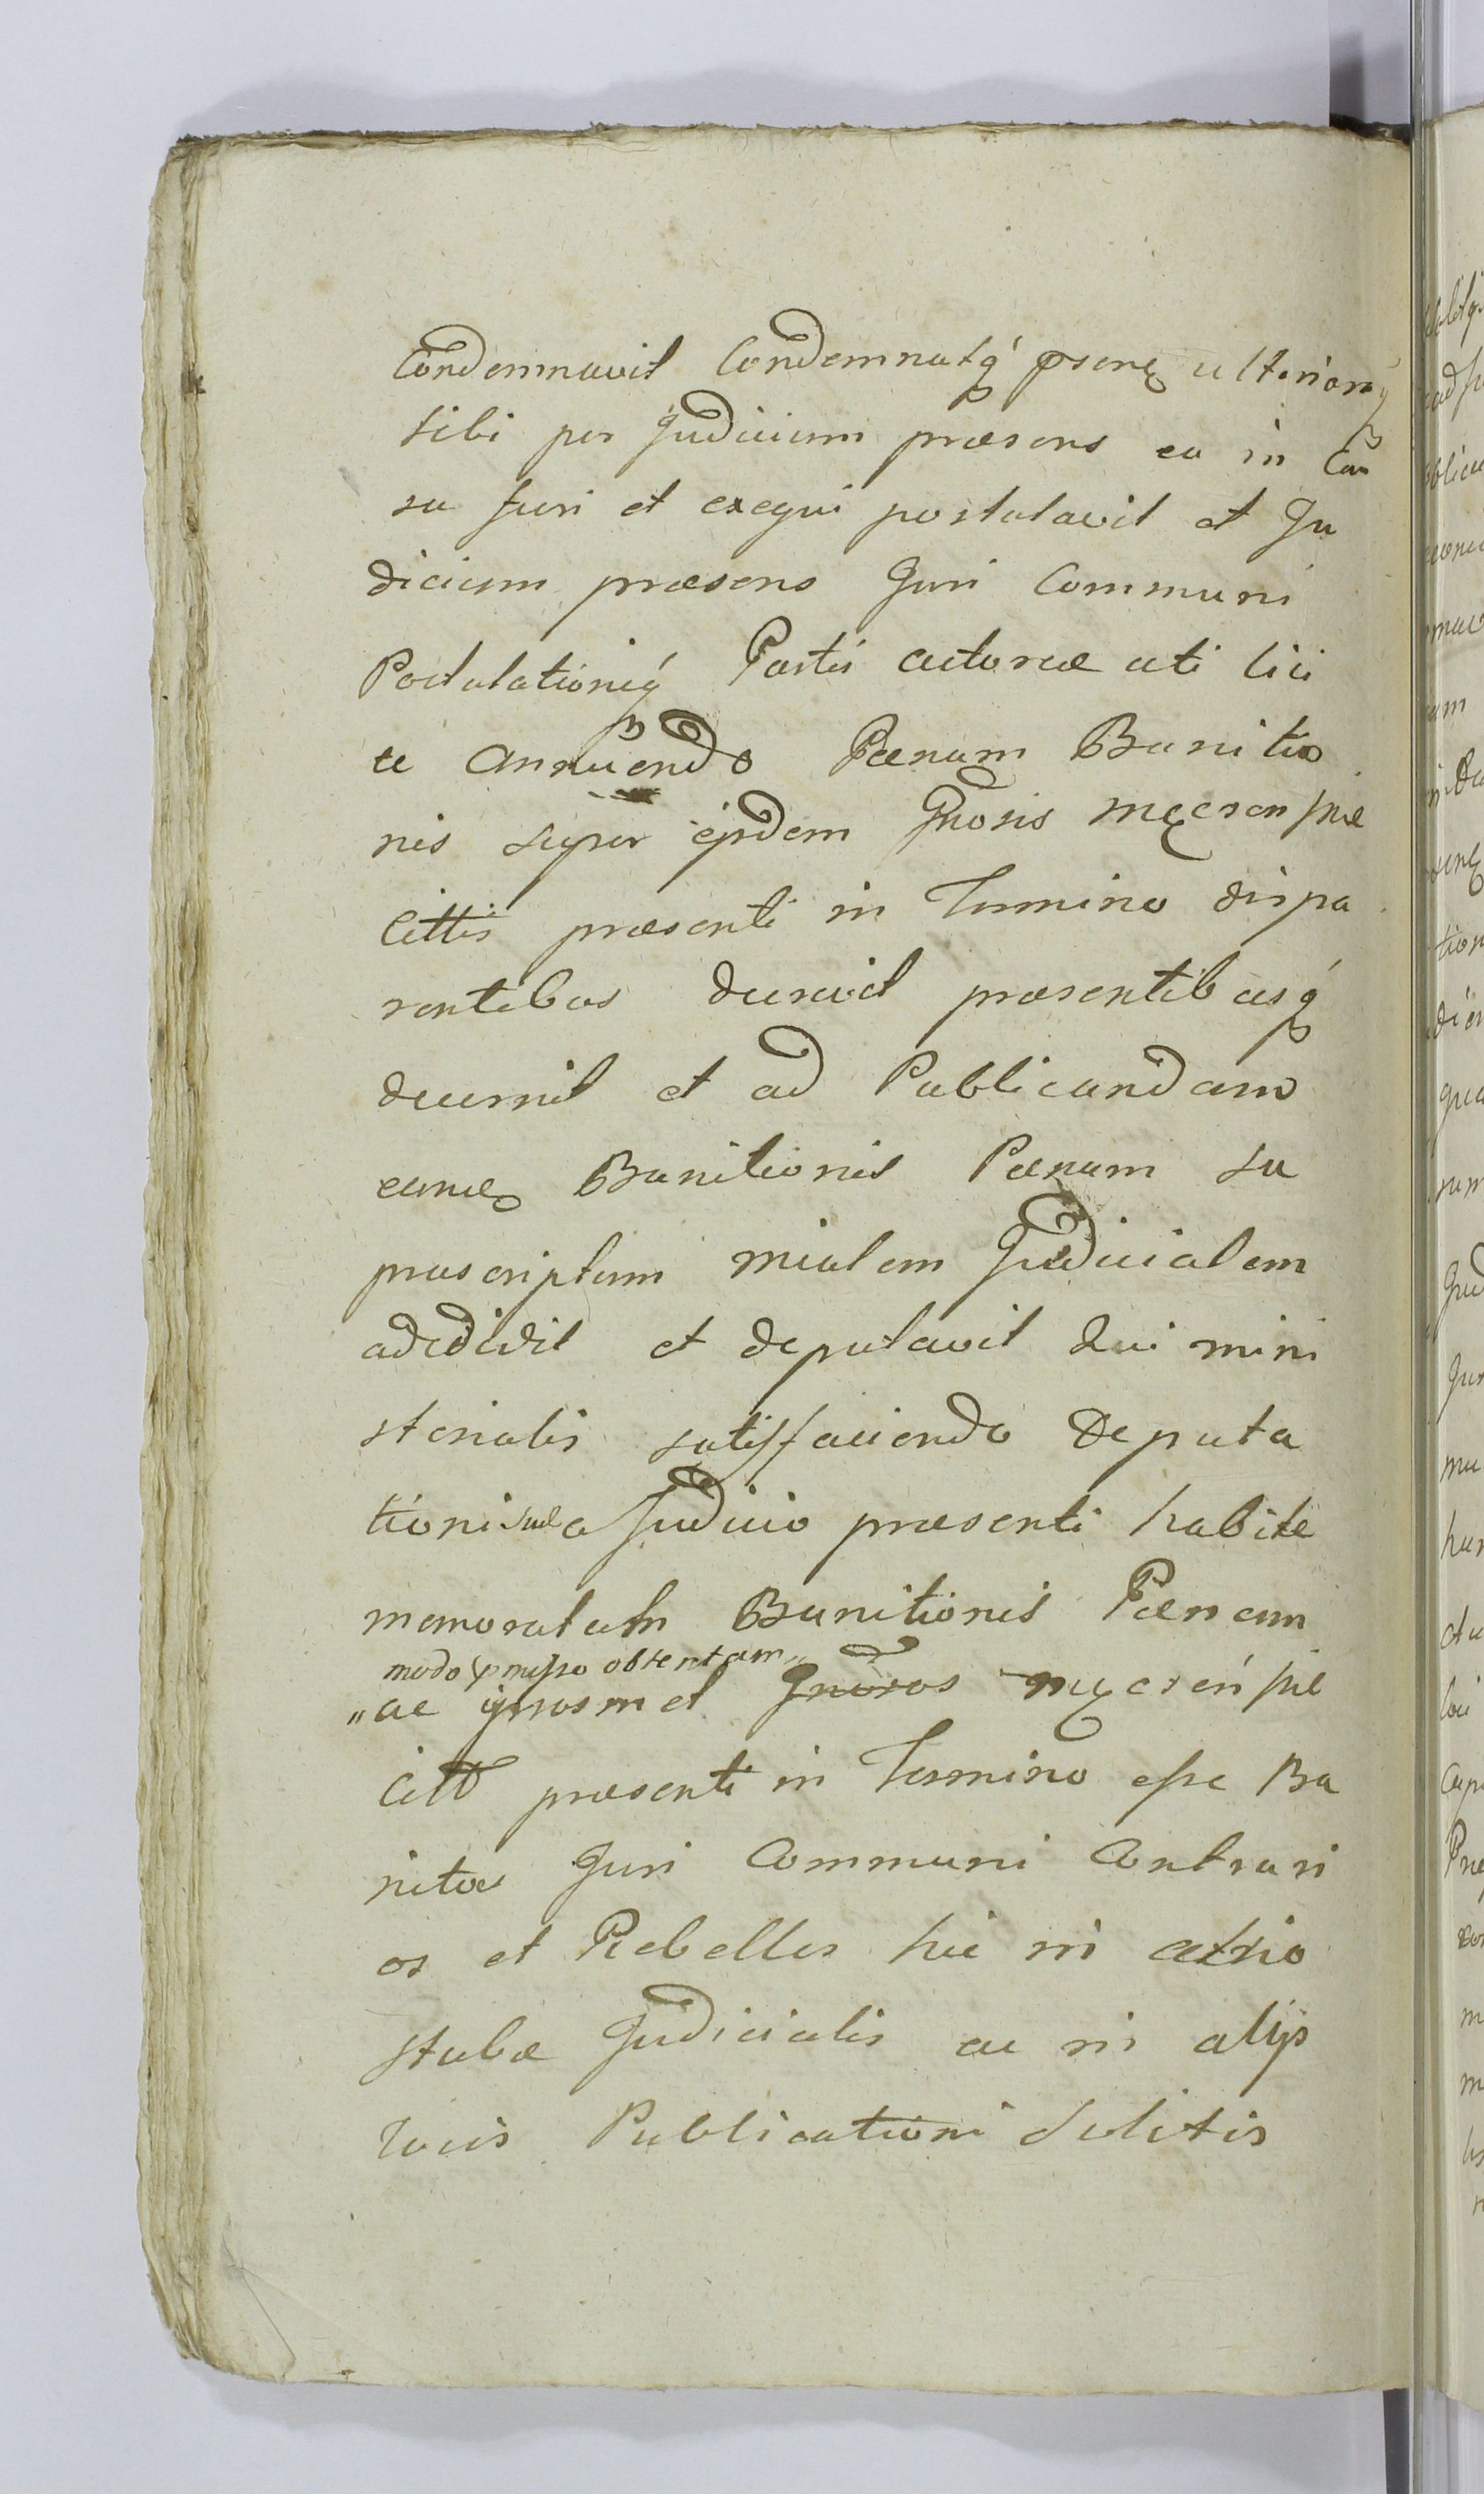 Condemnavit Condemnatq́ ulteriora
sibi per Judicium præsens ea in Cau
sa fieri et exequi postulavit et Ju
dicium præsens Juri Communi
Postulationiq́ Partis actoreæ uti lici
te Annuendo Pœnam Banitio
nis super ejsdem Gnosis
Cittis præsenti in Termino dispa
rentibus decrevit præsentibusq́
decernit et ad Publicandam
Banitionis Pœnam su
prascriptum mialem Judicialem
addidit et deputavit Qui mini
sterialis satisfaciendo deputa
tioni suæ a Judicio præsenti habitæ
memoratam Banitionis Pœnam
modo præmisso obtentam
ac Gnosos
Citt præsenti in Termino esse Ba
nitos Juri Communi Contrari
os et Rebelles hic in atrio
stubæ Judicialis ac in alijs
locis Publicationi solitis